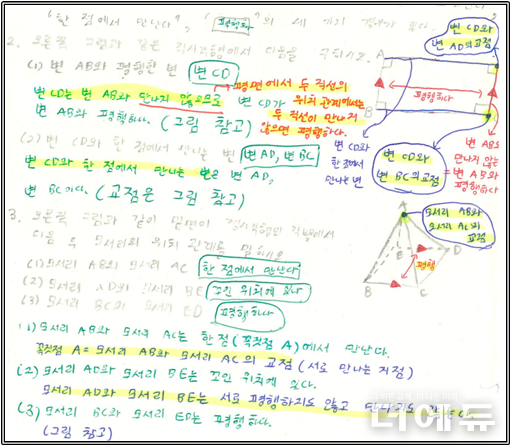 "한 점에서 만난다", "평행하다"의 세 가지 경우가 있다.
2. 오른쪽 그림과 같은 직사각형에서 다음을 구하시오.
(1) 변 AB와 평행한 변 변 CD
변 CD는 변 AB와 만나지 않으므로
변 AB와 평행하다. (그림 참고)
평면에서 두 직선의
위치 관계에서는
두 직선이 만나지
않으면 평행하다.
변 CD가
(2) 변 CD와 한 점에서 만나는 변 변 AD, 변 BC
변 CD와 한 점에서 만나는 변은 변 AD,
변 BC이다. (교점은 그림 참고)
변 CD와
변 AD의 교점
A
B
평행하다
변 CD와
한 점에서
만나는 변
변 CD와
변 BC의 교점
변 AB와
만나지 않는
= 변 AB와
평행하다
3. 오른쪽 그림과 같이 밑면이 직사각형인 각뿔에서
다음 두 모서리의 위치 관계를 말하시오.
(1) 모서리 AB와 모서리 AC 한 점에서 만난다
(2) 모서리 AD와 모서리 BE 꼬인 위치에 있다
(3) 모서리 BC와 모서리 ED 평행하다
모서리 AB와
모서리 AC의
교점
A
B
C
D
E
평행
(1) 모서리 AB와 모서리 AC는 한 점(꼭짓점 A)에서 만난다.
꼭짓점 A = 모서리 AB와 모서리 AC의 교점 (서로 만나는 지점)
(2) 모서리 AD와 모서리 BE는 꼬인 위치에 있다.
모서리 AD와 모서리 BE는 서로 평행하지도 않고 만나지도
(3) 모서리 BC와 모서리 ED는 평행하다.
(그림 참고)
더에듀